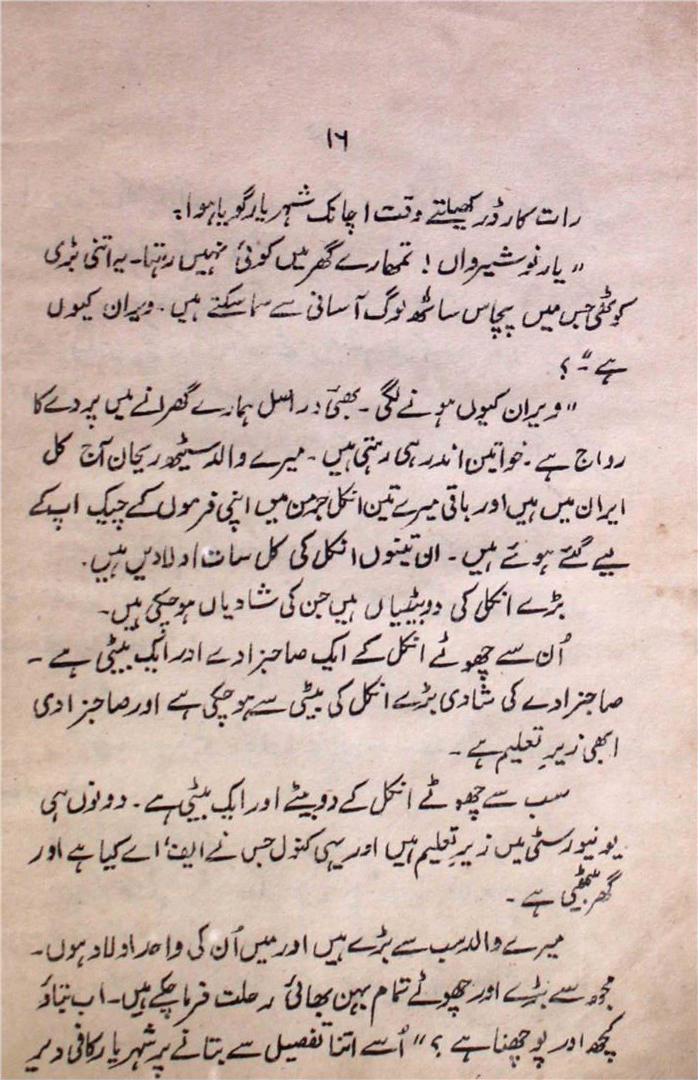 ۱۶
رات کارڈز کھیلتے وقت اچانک شہر یار گویا ہوا۔
"یار نوشیرواں! تمہارے گھر میں کوئی نہیں رہتا۔ یہ اتنی بڑی
کوٹھی جس میں پچاس ساٹھ لوگ آسانی سے سما سکتے ہیں۔ ویران کیوں
ہے"؟
"ویران کیوں ہونے لگی۔ بھئی دراصل ہمارے گھرانے میں پردے کا
رواج ہے۔ خواتین اندر ہی رہتی ہیں۔ میرے والد سیٹھ ریحان آج کل
ایران میں ہیں اور باقی میرے تین انکل جرمن میں اپنی فرموں کے چیک اپ کے
لیے گئے ہوئے ہیں۔ ان تینوں انکل کی کل سات اولادیں ہیں۔
بڑے انکل کی دو بیٹیاں ہیں جن کی شادیاں ہو چکی ہیں۔
اُن سے چھوٹے انکل کے ایک صاحبزادے اور ایک بیٹی ہے۔
صاحبزادے کی شادی بڑے انکل کی بیٹی سے ہو چکی ہے اور صاحبزادی
ابھی زیرِ تعلیم ہے۔
سب سے چھوٹے انکل کے دو بیٹے اور ایک بیٹی ہے۔ دونوں ہی
یونیورسٹی میں زیرِ تعلیم ہیں اور یہی کنول جس نے ایف اے کیا ہے اور
گھر بیٹھی ہے۔
میرے والد سب سے بڑے ہیں اور میں اُن کی واحد اولاد ہوں۔
مجھ سے بڑے اور چھوٹے تمام بہن بھائی رحلت فرما چکے ہیں۔ اب بتاؤ
کچھ اور پوچھنا ہے؟" اُسے اتنا تفصیل سے بتانے پر شہر یار کافی دیر